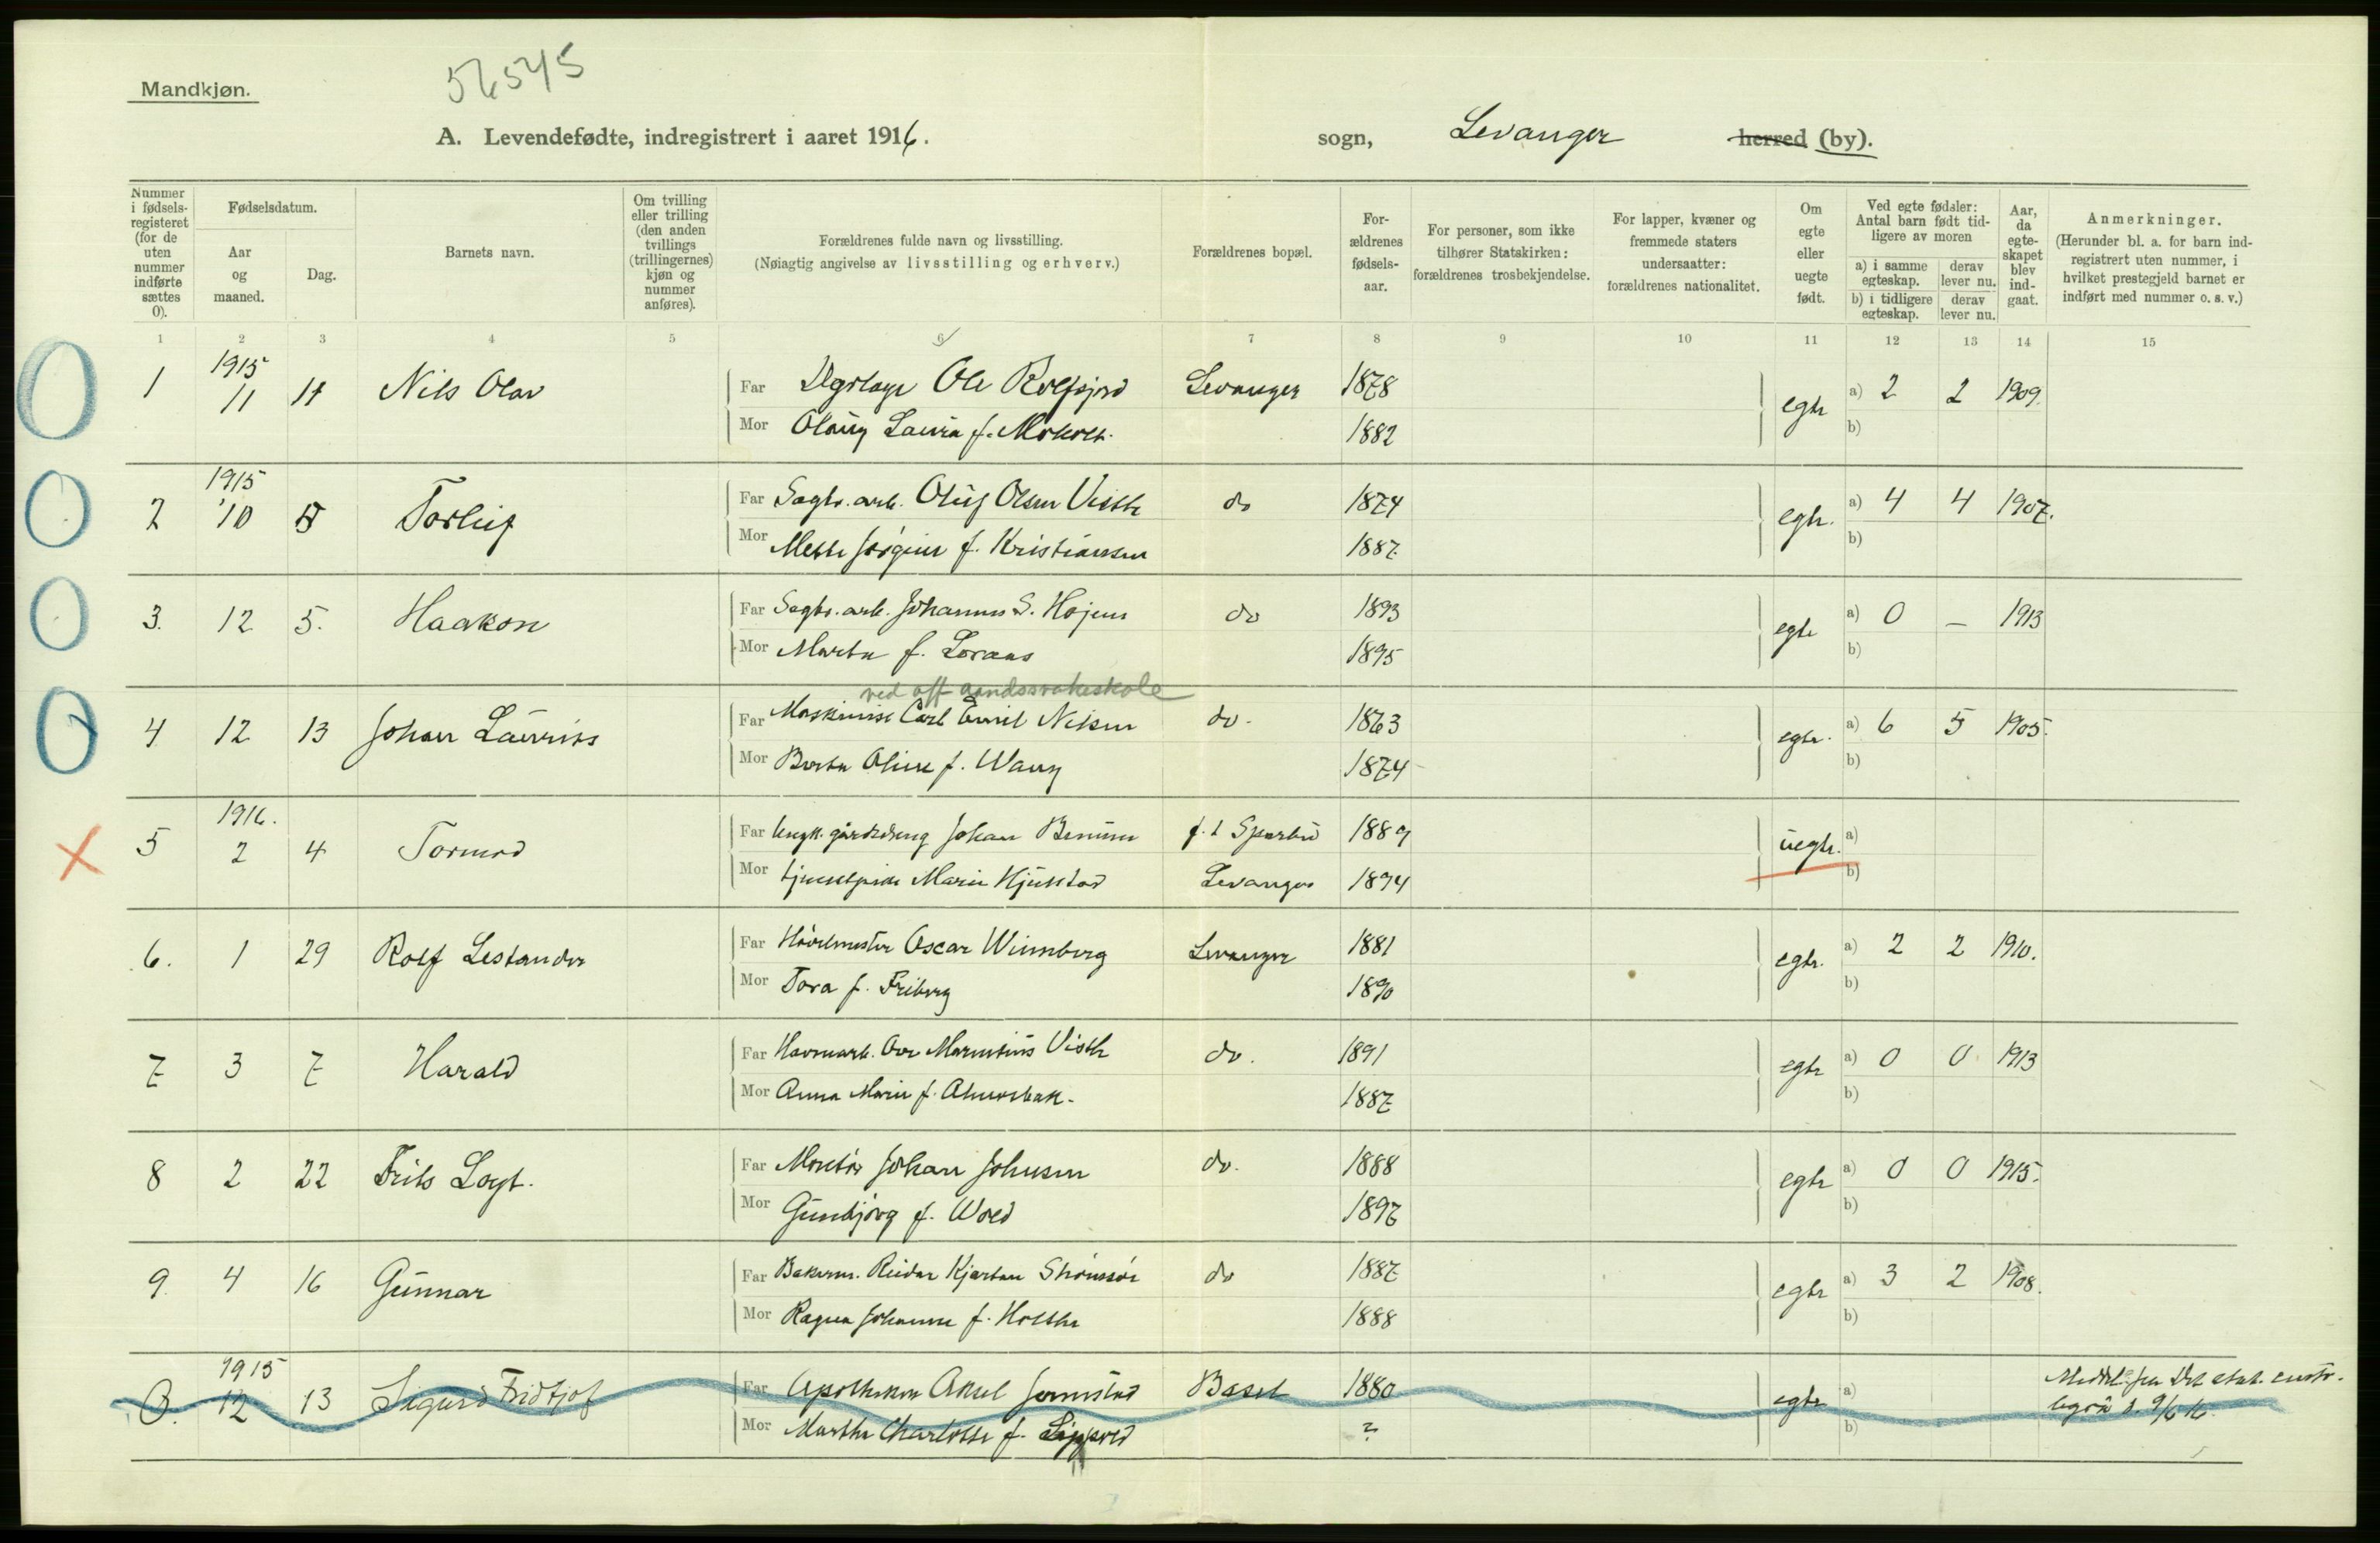 56545
Mandkjøn.
A. Levendefødte, indregistrert i aaret 1916.
sogn, Levanger herred (by).
Nummer i fødsels-registeret (for de uten nummer indførte sættes 0).
Fødselsdatum.
Aar og maaned.
Dag.
Barnets navn.
Om tvilling eller trilling (den anden tvillings (trillingernes) kjøn og nummer anføres).
Forældrenes fulde navn og livsstilling.
(Nøiagtig angivelse av livsstilling og erhverv.)
Forældrenes bopæl.
For-ældrenes fødsels-aar.
For personer, som ikke tilhører Statskirken: forældrenes trosbekjendelse.
For lapper, kvæner og fremmede staters undersaatter: forældrenes nationalitet.
Om egte eller uegte født.
Ved egte fødsler: Antal barn født tid-ligere av moren
a) i samme egteskap. derav lever nu.
b) i tidligere egteskap. derav lever nu.
Aar, da egte-skapet blev ind-gaat.
Anmerkninger.
(Herunder bl. a. for barn ind-registrert uten nummer, i hvilket prestegjeld barnet er indført med nummer o. s. v.)
1 2 3 4 5 6 7 8 9 10 11 12 13 14 15
1915
1 11 Nils Olav Far Ole Levanger 1878 egte a) 2 2 1909.
Mor Olaug Laura f. 1882 b)
1915
2 10 Torleif Far Sagbr. arb. Oluf Olsen Visth do 1874 egte. a) 4 4 1907.
Mor Mette f. Kristiansen 1887 b)
3. 12 5. Haakon Far Sagbr. arb. Johannes S. Højem do 1893 egte a) 0 – 1913
Mor Marta f. Loraas 1895 b)
ved off aandssvakeskole
4 12 13 Johan Laurits Far Maskinist Carl Emil Nilsen do. 1863 egte. a) 6 5 1905.
Mor Berta Oline f. Wang 1874 b)
1916.
5 2 4 Tormod Far Johan f. t Sparbu 1889 uegte. a)
Mor Marie Levanger 1894 b)
6. 1 29 Rolf Lestander Far Oscar Wennberg Levanger 1881 egte. a) 2 2 1910.
Mor Tora f. Friberg 1890 b)
7 3 7 Harald Far Havnearb. Visth do. 1891 egte a) 0 0 1913
Mor Anna Marie f. 1887 b)
8 2 22 Frits Far Montør Johan Johnsen do. 1888 egte a) 0 0 1915.
Mor Gunbjørg f. Wold 1897 b)
9. 4 16 Gunnar Far Bakerm. Reidar Kjartan do 1887 egte a) 3 2 1908.
Mor Ragna Johanne f. Holthe 1888 b)
1915
0. 12 13 Sigurd Fridtjof Far Apotheker Aksel Jermstad Basel 1880 egte a) Meddel. fra Det stat. centr.
Mor Martha Charlotte f. Lippold ? b) byrå d. 9/6 16.